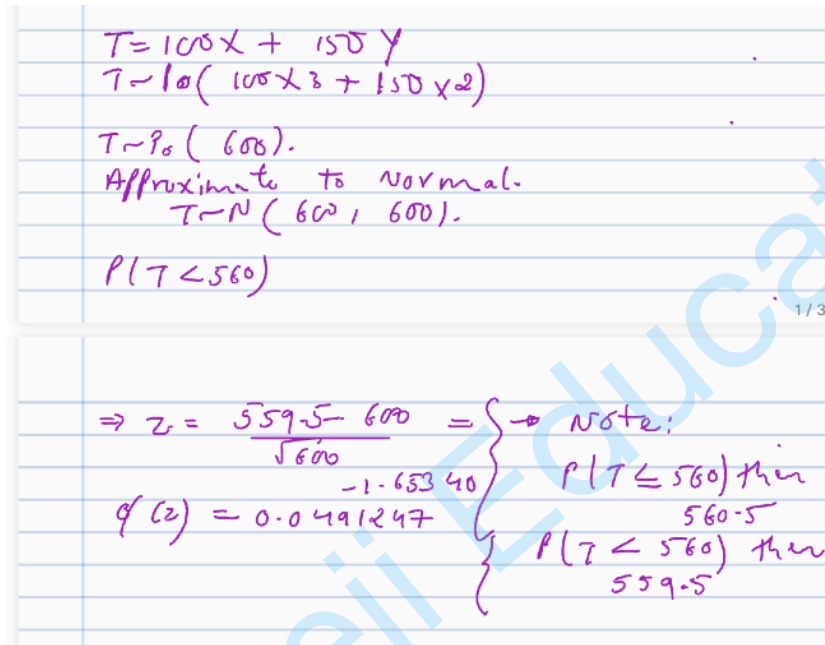 T = 100X + 150Y
T ~ Po( 100 x 3 + 150 x 2)
T ~ Po ( 600).
Approximate to Normal.
T ~ N ( 600, 600).
P(T < 560)
1 / 3
⇒ z = (559.5 - 600)/√600 = -1.65340
φ(z) = 0.0491247
→ Note:
P(T ≤ 560) then
560.5
P(T < 560) then
559.5
eji Educat